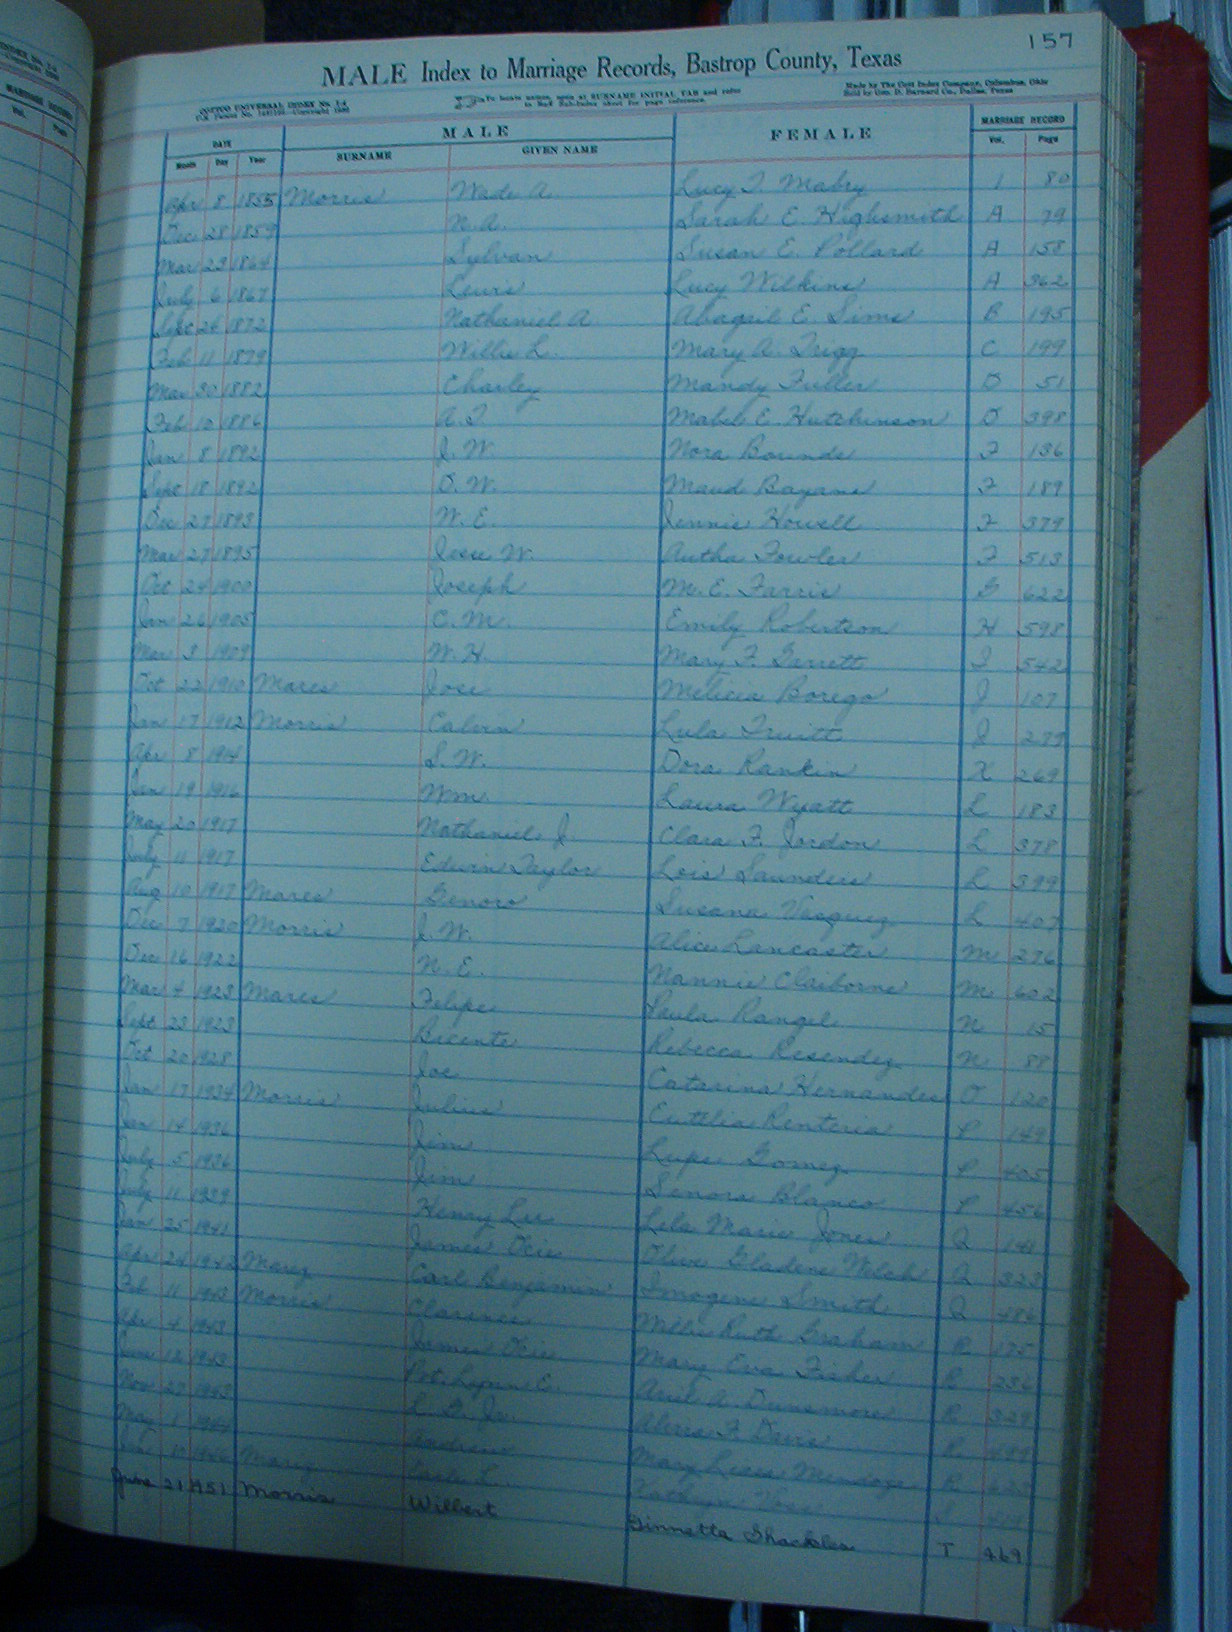 157
MALE Index to Marriage Records, Bastrop County, Texas
COTTCO UNIVERSAL INDEX No.
To locate names, open at SURNAME INITIAL TAB and refer
to Sub-Index sheet for page reference.
Made by The Cott Index Company, Columbus, Ohio
Sold by Geo. D. Barnard Co., Dallas, Texas
DATE MALE FEMALE MARRIAGE RECORD
Month Day Year SURNAME GIVEN NAME Vol. Page
Apr 8 1855 Morris Wade A. Lucy T. Mabry 1 80
Dec 28 1859 N. A. Sarah E. Highsmith A 79
Mar 23 1864 Sylvan Susan E. Pollard A 158
July 6 1867 Lewis Lucy Wilkins A 362
Sept 24 1872 Nathaniel A Abagail E. Sims B 195
Feb 11 1879 Willie L. Mary A. Trigg C 199
Mar 30 1882 Charley Mandy Fuller D 51
Feb 10 1886 A. T. Mabel E. Hutchinson D 398
Jan 8 1892 J. W. Nora Bounds F 136
Sept 18 1892 O. W. Maud Bayams F 189
Dec 27 1893 W. E. Jennie Howell F 379
Mar 27 1895 Jesse W. Autha Fowler F 513
Oct 24 1900 Joseph M. E. Farris G 622
Jan 26 1905 C. M. Emily Robertson H 598
Mar 3 1909 W. H. Mary F. Garrett I 542
Oct 22 1910 Mares Jose Melicia Borego J 107
Jan 17 1912 Morris Calvin Lula Truitt J 279
Apr 8 1914 S. W. Dora Rankin K 269
Jan 19 1916 Wm Laura Wyatt L 183
May 20 1917 Nathaniel J. Clara F. Jordon L 378
July 11 1917 Edwin Taylor Lois Saunders L 399
Aug 10 1917 Mares Genoro Susana Vasquez L 407
Dec 7 1920 Morris J. W. Alice Lancaster M 276
Dec 16 1922 N. E. Nannie Claiborne M 602
Mar 4 1923 Mares Felipe Paula Rangel N 15
Sept 23 1923 Bicente Rebecca Resendez N 88
Oct 20 1928 Joe Catarina Hernandes O 120
Jan 17 1934 Morris Julius Eutelia Renteria P 149
Jan 14 1936 Jim Lupe Gomez P 405
July 5 1936 Jim Senora Blanco P 456
July 11 1939 Henry Lee Lela Marie Jones Q 141
Jan 25 1941 James Ocie Olive Gladene Welch Q 323
Apr 24 1942 Marez Carl Benjamin Imogene Smith Q 486
Feb 11 1943 Morris Clarence Millie Ruth Graham R 175
Apr 4 1943 James Ocie Mary Eva Fisher R 236
June 12 1943 Pvt. Lynn E. Ariel A. Dunsmore R 329
Nov 27 1943 L. D. Jr. F. Davis R
May 1 Andrew Mary Mendoza R
Marez Kathryn S
June 21 1951 Morris Wilbert Ginnetta Shackles T 469